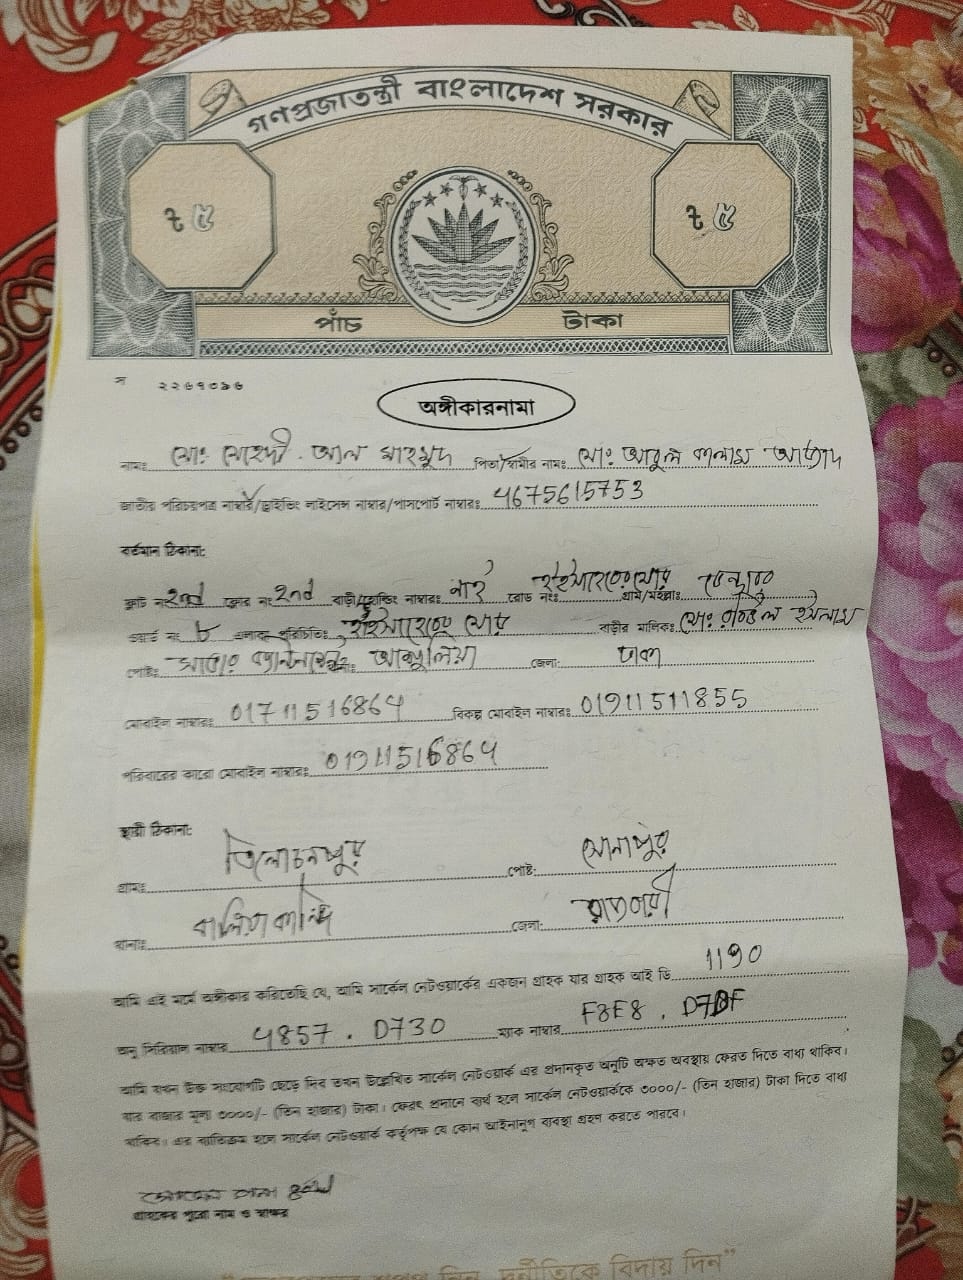 গণপ্রজাতন্ত্রী বাংলাদেশ সরকার
৳ ৫ ৳ ৫
পাঁচ টাকা
অঙ্গীকারনামা
নামঃ মোঃ মেহেদী আল মাহমুদ পিতা/স্বামীর নামঃ মোঃ আবুল কালাম আজাদ
জাতীয় পরিচয়পত্র নাম্বার/ড্রাইভিং লাইসেন্স নাম্বার/পাসপোর্ট নাম্বারঃ 4675615753
বর্তমান ঠিকানা:
ফ্লাট নং 2nd ফ্লোর নং 2nd বাড়ী/হোল্ডিং নাম্বারঃ নাই রোড নং গ্রাম/মহল্লাঃ
ওয়ার্ড নং ৮ এলাকা পরিচিতিঃ বাড়ীর মালিকঃ মোঃ ইসলাম
পোষ্টঃ জেলা: ঢাকা
মোবাইল নাম্বারঃ 01711516864 বিকল্প মোবাইল নাম্বারঃ 01911511855
পরিবারের কারো মোবাইল নাম্বারঃ 01911516864
স্থায়ী ঠিকানা:
গ্রামঃ ত্রিলোচনপুর পোষ্ট: সোনাপুর
থানাঃ বালিয়াকান্দি জেলা: রাজবাড়ী
আমি এই মর্মে অঙ্গীকার করিতেছি যে, আমি সার্কেল নেটওয়ার্কের একজন গ্রাহক যার গ্রাহক আই ডি 1190
অনু সিরিয়াল নাম্বার 4857 . D730 ম্যাক নাম্বার F8E8 .
আমি যখন উক্ত সংযোগটি ছেড়ে দিব তখন উল্লেখিত সার্কেল নেটওয়ার্ক এর প্রদানকৃত অনুটি অক্ষত অবস্থায় ফেরত দিতে বাধ্য থাকিব।
যার বাজার মূল্য ৩০০০/- (তিন হাজার) টাকা। ফেরৎ প্রদানে ব্যর্থ হলে সার্কেল নেটওয়ার্ককে ৩০০০/- (তিন হাজার) টাকা দিতে বাধ্য
থাকিব। এর ব্যতিক্রম হলে সার্কেল নেটওয়ার্ক কর্তৃপক্ষ যে কোন আইনানুগ ব্যবস্থা গ্রহণ করতে পারবে।
গ্রাহকের পুরো নাম ও স্বাক্ষর
দুর্নীতিকে বিদায় দিন"